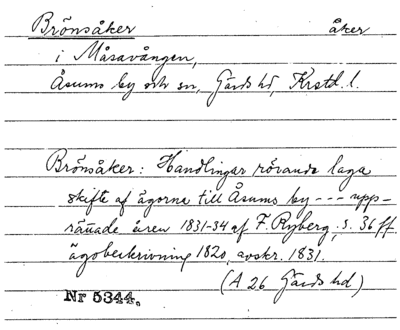 Brönsåker åker
i Måsavången,
Åsums by och sn, Gärds hd, Krstd. l.
Brönsåker: Handlingar rörande laga
skifte af ägorna till Åsums by --- upp-
rättade åren 1831-34 af F. Ryberg, s. 36 ff
ägobeskrivning 1820, avskr. 1831.
(A 26 Gärds hd)
Nr 5344.